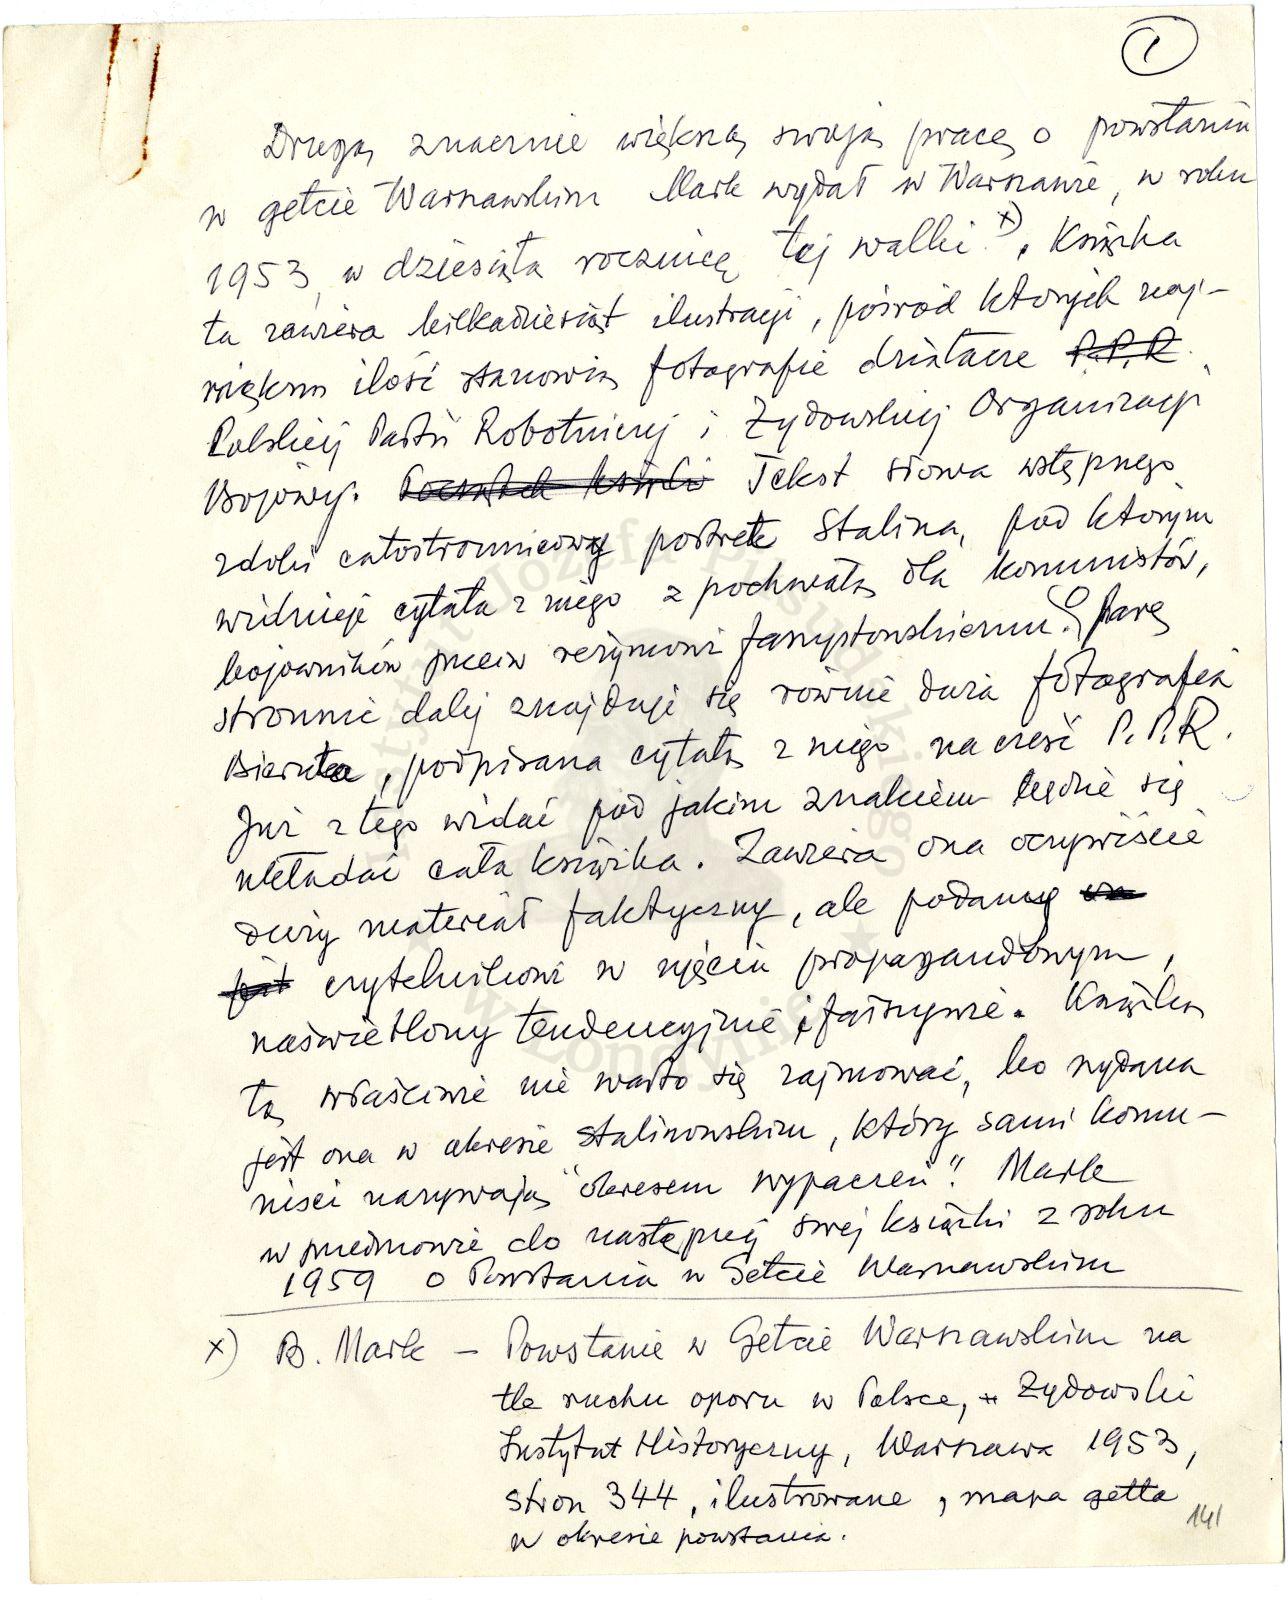 1
Drugą, znacznie większą swoją pracę o powstaniu
w getcie Warszawskim Mark wydał w Warszawie, w roku
1953, w dziesiątą rocznicę tej walki x). Książka
ta zawiera kilkadziesiąt ilustracji, pośród których naj-
większą ilość stanowią fotografie działacze P.P.R.
Polskiej Partii Robotniczej i Żydowskiej Organizacji
Bojowej. Początek książki Tekst słowa wstępnego
zdobi całostronnicowy portret Stalina, pod którym
widnieje cytata z niego z pochwałą dla komunistów,
bojowników przeciw reżymowi faszystowskiemu. Parę
stronnic dalej znajduje się równie duża fotografia
Bieruta, podpisana cytatą z niego na cześć P.P.R.
Już z tego widać pod jakim znakiem będzie się
układać cała książka. Zawiera ona oczywiście
duży materiał faktyczny, ale podany
jest czytelnikowi w ujęciu propagandowym,
naświetlony tendencyjnie i fałszywie. Książką
tą właściwie nie warto się zajmować, bo wydana
jest ona w okresie stalinowskim, który sami komu-
niści nazywają "okresem wypaczeń". Mark
w przedmowie do następnej swej książki z roku
1959 o Powstaniu w Getcie Warszawskim
x) B. Mark – Powstanie w Getcie Warszawskim na
tle ruchu oporu w Polsce, Żydowski
Instytut Historyczny, Warszawa 1953,
stron 344, ilustrowane, mapa getta
w okresie powstania.
141
Instytut Józefa Piłsudskiego
w Londynie